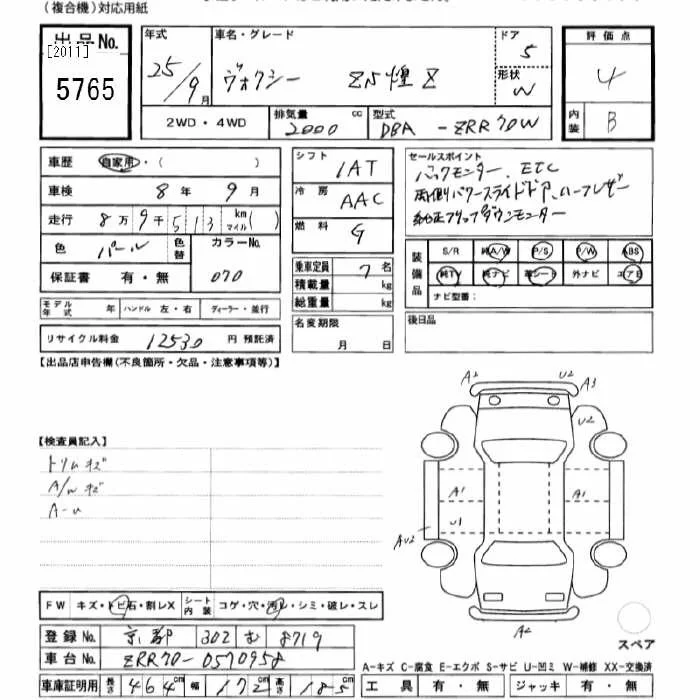 (複合機)対応用紙
出品No. [2011] 5765
年式 25/9月
車名・グレード ヴォクシー ZS煌Z
ドア 5
形状 W
評価点 4
内装 B
2WD・4WD
排気量 2000 cc
型式 DBA-ZRR70W
車歴 自家用・( )
車検 8年 9月
走行 8万9千513km(マイル)
色 パール 色替
カラーNo. 070
保証書 有・無
モデル年式 年 ハンドル 左・右 ディーラー・並行
リサイクル料金 12530 円 預託済
シフト IAT
冷房 AAC
燃料 G
乗車定員 7名
積載量 kg
総重量 kg
名変期限 月 日
セールスポイント
バックモニター、ETC
両側パワースライドドア、ハーフレザー
純正フリップダウンモニター
装備品 S/R 純A/W P/S P/W ABS
純TV 純ナビ 革シート 外ナビ エアB
ナビ型番:
後日品
【出品店申告欄(不良箇所・欠品・注意事項等)】
【検査員記入】
トリムキズ
A/wキズ
A-u
A2 U2 A3
U2
A1 A1
U1
AU2
A2
スペア
FW キズ・トビ石・割レX シート内装 コゲ・穴・汚レ・シミ・破レ・スレ
登録No. 京都 302 む 8719
車台No. ZRR70-0570958
車庫証明用 長さ 464cm 幅 172cm 高さ 185cm
A-キズ C-腐食 E-エクボ S-サビ U-凹ミ W-補修 XX-交換済
工具 有・無 ジャッキ 有・無